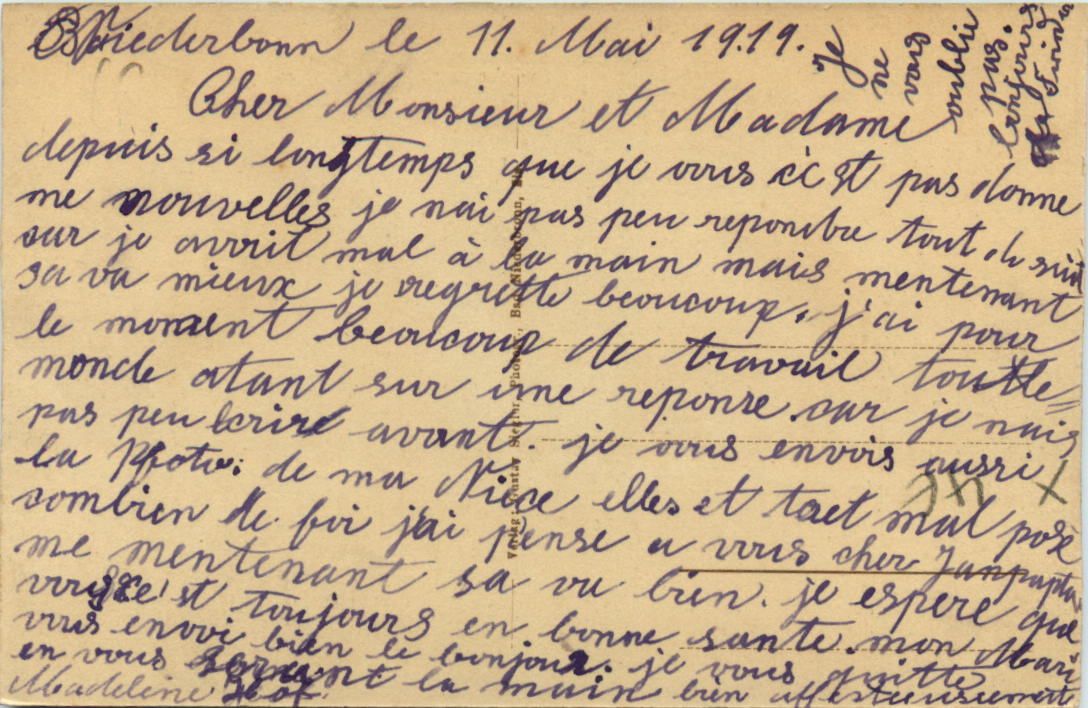 Niederbonn le 11. Mai 1919.
Cher Monsieur et Madame
depuis si longtemps que je vous c'est pas donne
me nouvelles je nai pas peu repondre tout de suit
car je avvait mal à la main mais mentenant
sa va mieux je regrette beaucoup. j'ai pour
le moment beaucoup de travail toutle=
monde atant sur une reponse. car je nais
pas peu écrire avant. je vous envois aussi
la Photo: de ma Nièce elles et tout mal posé
combien de foi j'ai pense a vous cher
me mentenant sa va bien. je espere que
vous c'est toujours en bonne sante. mon Mari
vous envoi bien le bonjour. je vous quitte
en vous serrent la main bien affestueusement
Madeleine Hof
Je
ne
vous
oublie
pas.
toujours
Verlag: Gustav Photogr., Bad Niederbronn, Els.